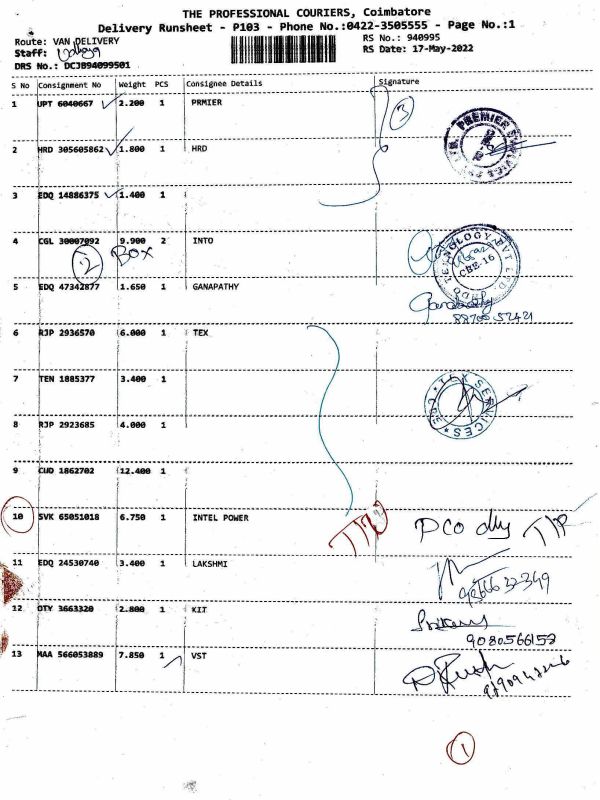 THE PROFESSIONAL COURIERS, Coimbatore
Delivery Runsheet - P103 - Phone No.:0422-3505555 - Page No.:1
Route: VAN DELIVERY
RS No.: 940995
Staff:
RS Date: 17-May-2022
DRS No.: DCJB94099501
S No Consignment No Weight PCS Consignee Details Signature
1 UPT 6040667 2.200 1 PRMIER
3
PREMIER
2 HRD 305605862 1.800 1 HRD
3 EDQ 14886375 1.400 1
4 CGL 30007092 9.900 2 INTO
2 BOX
TECNOLOGY PVT LTD
CBE-16
5 EDQ 47342877 1.650 1 GANAPATHY
Ganapathy
6 RJP 2936570 6.000 1 TEX
7 TEN 1885377 3.400 1
TEX SERVICES * CBE *
8 RJP 2923685 4.000 1
9 CUD 1862702 12.400 1
10 SVK 65051018 6.750 1 INTEL POWER
PCO dly
11 EDQ 24530740 3.400 1 LAKSHMI
12 OTY 3663320 2.800 1 KIT
9080566153
13 MAA 566053889 7.850 1 VST
1